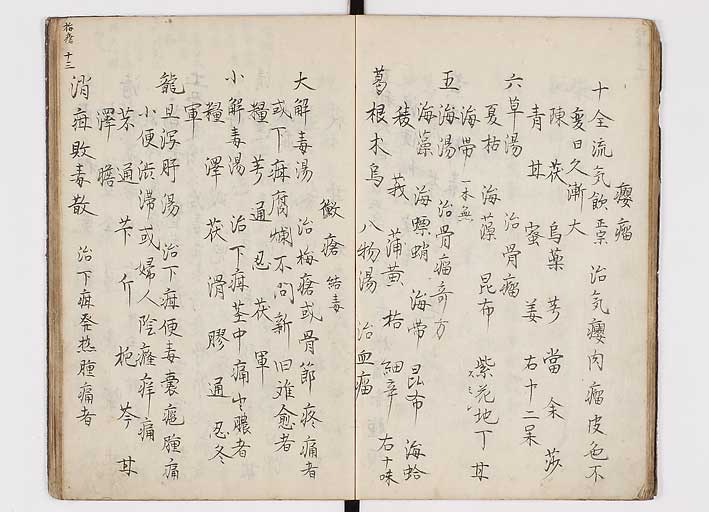 癭瘤
十全流気飲 正宗 治気癭肉瘤皮色不
変日久漸大
陳 茯 烏薬 芎 當 余 莎
青 甘 蜜 姜 右十二味
六草湯 治骨瘤
夏枯 海藻 昆布 紫花地丁 甘
海帯 一本無
五海湯 治骨瘤奇方
海藻 海螵蛸 海帯 昆布 海蛤
稜 莪 蒲黄 桔 細辛 右十味
葛根 木烏 八物湯 治血瘤
黴瘡 結毒
大解毒湯 治梅瘡或骨節疼痛者
或下疳腐爛不問新旧难愈者
粮 芎 通 忍 茯 軍
小解毒湯 治下疳茎中痛出膿者
粮 澤 茯 滑 膠 通 忍冬
軍
龍且瀉肝湯 治下疳便毒嚢癰腫痛
小便渋滞或婦人陰癃痒痛
芣 通 芐 亍 梔 芩 甘
澤 膽
消疳敗毒散 治下疳発热腫痛者
十三